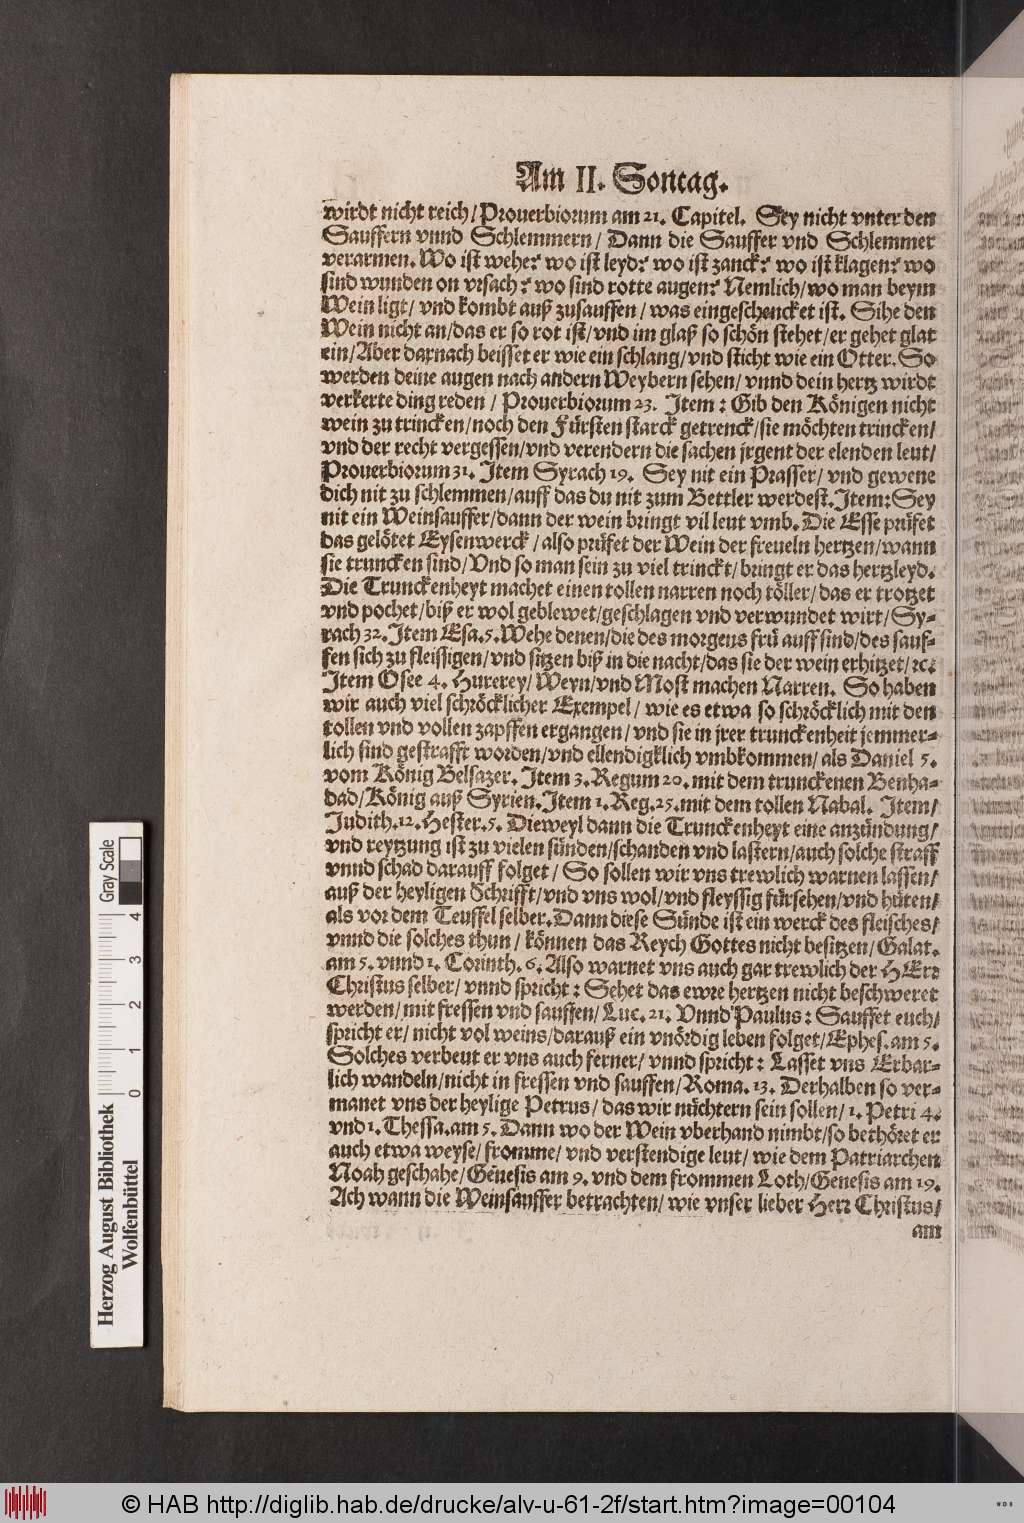 Am II. Sontag.
wirdt nicht reich/Prouerbiorum am 21. Capitel. Sey nicht vnter den
Sauffern vnnd Schlemmern/ Dann die Sauffer vnd Schlemmer
verarmen. Wo ist wehe? wo ist leyd? wo ist zanck? wo ist klagen? wo
sind wunden on vrsach? wo sind rotte augen? Nemlich/wo man beym
Wein ligt/ vnd kombt auß zusauffen/ was eingeschencket ist. Sihe den
Wein nicht an/das er so rot ist/vnd im glaß so schön stehet/er gehet glat
ein/Aber darnach beisset er wie ein schlang/vnd sticht wie ein Otter. So
werden deine augen nach andern Weybern sehen/ vnnd dein hertz wirdt
verkerte ding reden/ Prouerbiorum 23. Item: Gib den Königen nicht
wein zu trincken/noch den Fürsten starck getrenck/sie möchten trincken/
vnd der recht vergessen/vnd verendern die sachen jrgent der elenden leut/
Prouerbiorum 31. Item Syrach 19. Sey nit ein Prasser/ vnd gewene
dich nit zu schlemmen/auff das du nit zum Bettler werdest. Item: Sey
nit ein Weinsauffer/dann der wein bringt vil leut vmb. Die Esse prüfet
das gelötet Eysenwerck/also prüfet der Wein der freueln hertzen/wann
sie truncken sind/Vnd so man sein zu viel trinckt/ bringt er das hertzleyd.
Die Trunckenheyt machet einen tollen narren noch töller/das er trotzet
vnd pochet/biß er wol geblewet/geschlagen vnd verwundet wirt/Sy-
rach 32. Item Esa. 5. Wehe denen/die des morgens frü auff sind/des sauf-
fen sich zu fleissigen/vnd sitzen biß in die nacht/das sie der wein erhitzet/ꝛc.
Item Osee 4. Hurerey/Weyn/vnd Most machen Narren. So haben
wir auch viel schröcklicher Exempel/ wie es etwa so schröcklich mit den
tollen vnd vollen zapffen ergangen/vnd sie in jrer trunckenheit jemmer-
lich sind gestrafft worden/vnd ellendigklich vmbkommen/als Daniel 5.
vom König Belsazer. Item 3. Regum 20. mit dem trunckenen Benha-
dad/König auß Syrien. Item 1. Reg. 25. mit dem tollen Nabal. Item/
Judith. 12. Hester. 5. Dieweyl dann die Trunckenheyt eine anzündung/
vnd reytzung ist zu vielen sünden/schanden vnd lastern/auch solche straff
vnnd schad darauff folget/ So sollen wir vns trewlich warnen lassen/
auß der heyligen Schrifft/vnd vns wol/vnd fleyssig fürsehen/vnd hüten/
als vor dem Teuffel selber. Dann diese Sünde ist ein werck des fleisches/
vnnd die solches thun/ können das Reych Gottes nicht besitzen/Galat.
am 5. vnnd 1. Corinth. 6. Also warnet vns auch gar trewlich der HErr
Christus selber/ vnnd spricht: Sehet das ewre hertzen nicht beschweret
werden/mit fressen vnd sauffen/Luc. 21. Vnnd Paulus: Sauffet euch/
spricht er/ nicht vol weins/darauß ein vnördig leben folget/Ephes. am 5.
Solches verbeut er vns auch ferner/ vnnd spricht: Lasset vns Erbar-
lich wandeln/nicht in fressen vnd sauffen/Roma. 13. Derhalben so ver-
manet vns der heylige Petrus/das wir nüchtern sein sollen/1. Petri 4.
vnd 1. Thessa. am 5. Dann wo der Wein vberhand nimbt/so bethöret er
auch etwa weyse/fromme/vnd verstendige leut/wie dem Patriarchen
Noah geschahe/Genesis am 9. vnd dem frommen Loth/Genesis am 19.
Ach wann die Weinsauffer betrachten/ wie vnser lieber Herr Christus/
am
Herzog August Bibliothek
Wolfenbüttel
0 1 2 3 4
Gray Scale
© HAB http://diglib.hab.de/drucke/alv-u-61-2f/start.htm?image=00104
WDB